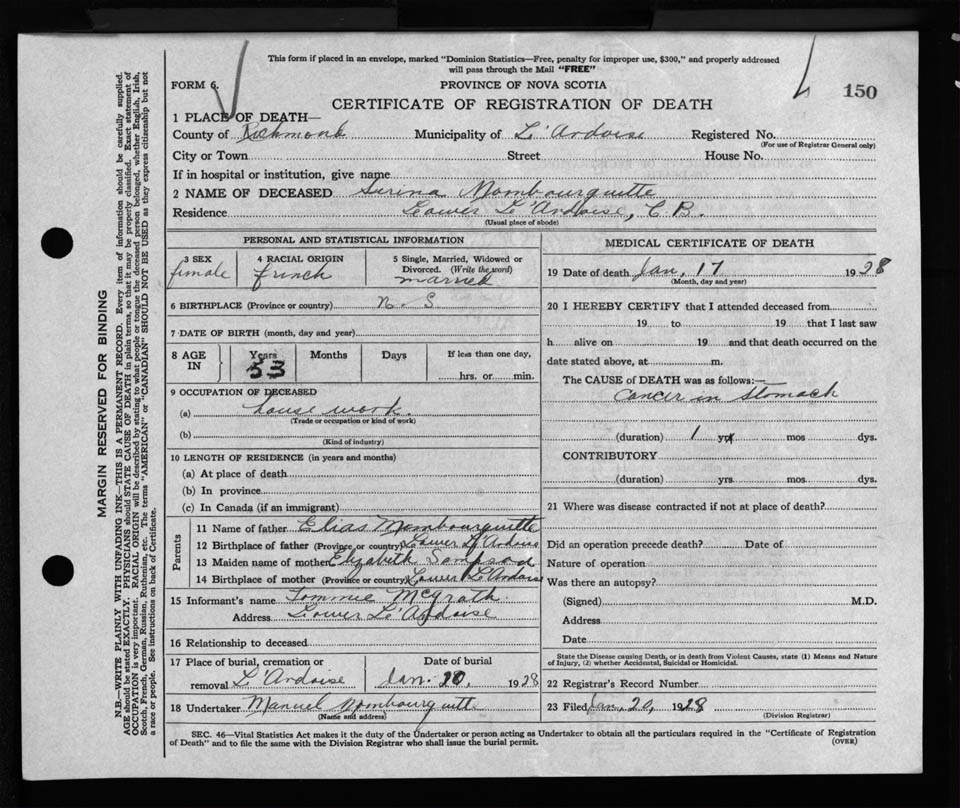 This form if placed in an envelope, marked "Dominion Statistics—Free, penalty for improper use, $300," and properly addressed
will pass through the Mail "FREE"
FORM 6.
PROVINCE OF NOVA SCOTIA
150
CERTIFICATE OF REGISTRATION OF DEATH
1 PLACE OF DEATH—
County of Richmond Municipality of L'Ardoise Registered No.
(For use of Registrar General only)
City or Town Street House No.
If in hospital or institution, give name
2 NAME OF DECEASED Surina Mombourquette
Residence Lower L'Ardoise, C B.
(Usual place of abode)
PERSONAL AND STATISTICAL INFORMATION
3 SEX 4 RACIAL ORIGIN 5 Single, Married, Widowed or
Divorced. (Write the word)
female french married
6 BIRTHPLACE (Province or country) N. S.
7 DATE OF BIRTH (month, day and year)
8 AGE IN Years Months Days If less than one day,
53 hrs. or min.
9 OCCUPATION OF DECEASED
(a) house work.
(Trade or occupation or kind of work)
(b)
(Kind of industry)
10 LENGTH OF RESIDENCE (in years and months)
(a) At place of death
(b) In province
(c) In Canada (if an immigrant)
Parents
11 Name of father Elias Mombourquette
12 Birthplace of father (Province or country) Lower L'Ardoise
13 Maiden name of mother Elizabeth Sampson
14 Birthplace of mother (Province or country) Lower L'Ardoise
15 Informant's name Tommie McGrath.
Address Lower L'Ardoise
16 Relationship to deceased
17 Place of burial, cremation or Date of burial
removal L'Ardoise Jan. 20, 1928
18 Undertaker Manuel Mombourquette
(Name and address)
MEDICAL CERTIFICATE OF DEATH
19 Date of death Jan, 17 1928
(Month, day and year)
20 I HEREBY CERTIFY that I attended deceased from
19 to 19 that I last saw
h alive on 19 and that death occurred on the
date stated above, at m.
The CAUSE of DEATH was as follows:—
Cancer in Stomach
(duration) 1 yrs mos dys.
CONTRIBUTORY
(duration) yrs. mos. dys.
21 Where was disease contracted if not at place of death?
Did an operation precede death? Date of
Nature of operation
Was there an autopsy?
(Signed) M.D.
Address
Date
State the Disease causing Death, or in death from Violent Causes, state (1) Means and Nature
of Injury, (2) whether Accidental, Suicidal or Homicidal.
22 Registrar's Record Number
23 Filed Jan, 20, 1928
(Division Registrar)
SEC. 46—Vital Statistics Act makes it the duty of the Undertaker or person acting as Undertaker to obtain all the particulars required in the "Certificate of Registration
of Death" and to file the same with the Division Registrar who shall issue the burial permit.
(OVER)
MARGIN RESERVED FOR BINDING
N.B.—WRITE PLAINLY WITH UNFADING INK—THIS IS A PERMANENT RECORD. Every item of information should be carefully supplied.
AGE should be stated EXACTLY. PHYSICIANS should STATE CAUSE OF DEATH in plain terms, so that it may be properly classified. Exact statement of
OCCUPATION is very important. RACIAL ORIGIN will be described by stating to what people or tongue the deceased person belonged, whether English, Irish,
Scotch, French, German, Russian, Ruthenian, etc. The terms "AMERICAN" or "CANADIAN" SHOULD NOT BE USED as they express citizenship but not
a race or people. See instructions on back of Certificate.